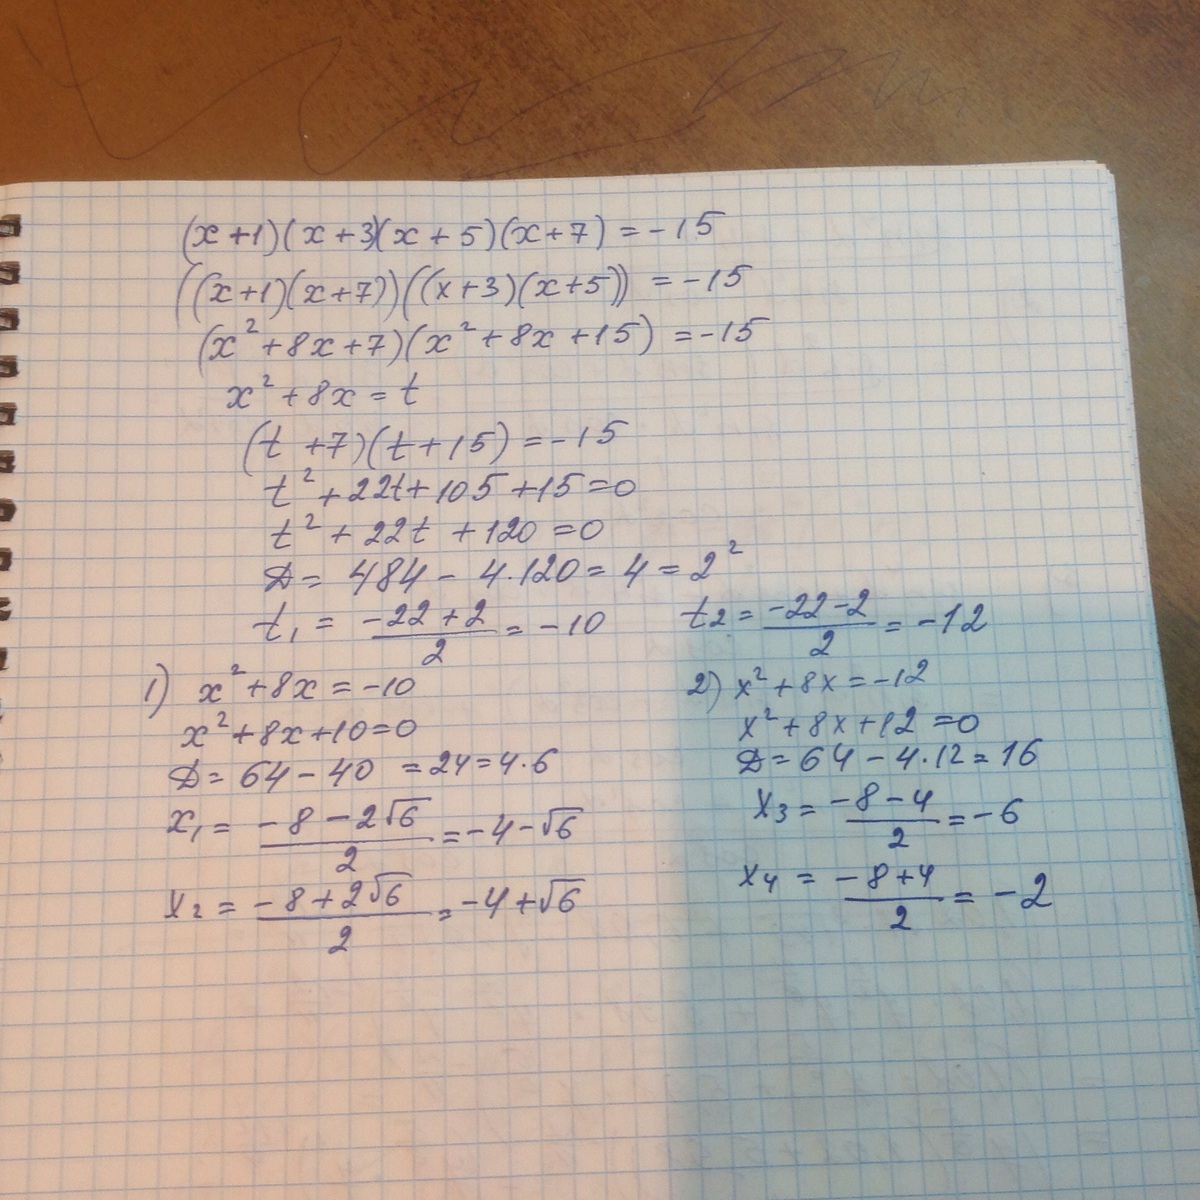 (x+1)(x+3)(x+5)(x+7)=-15
((x+1)(x+7))((x+3)(x+5))=-15
(x²+8x+7)(x²+8x+15)=-15
x²+8x=t
(t+7)(t+15)=-15
t²+22t+105+15=0
t²+22t+120=0
D=484-4·120=4=2²
t₁=(-22+2)/2=-10 t₂=(-22-2)/2=-12
1) x²+8x=-10
x²+8x+10=0
D=64-40=24=4·6
x₁=(-8-2√6)/2=-4-√6
x₂=(-8+2√6)/2=-4+√6
2) x²+8x=-12
x²+8x+12=0
D=64-4·12=16
x₃=(-8-4)/2=-6
x₄=(-8+4)/2=-2